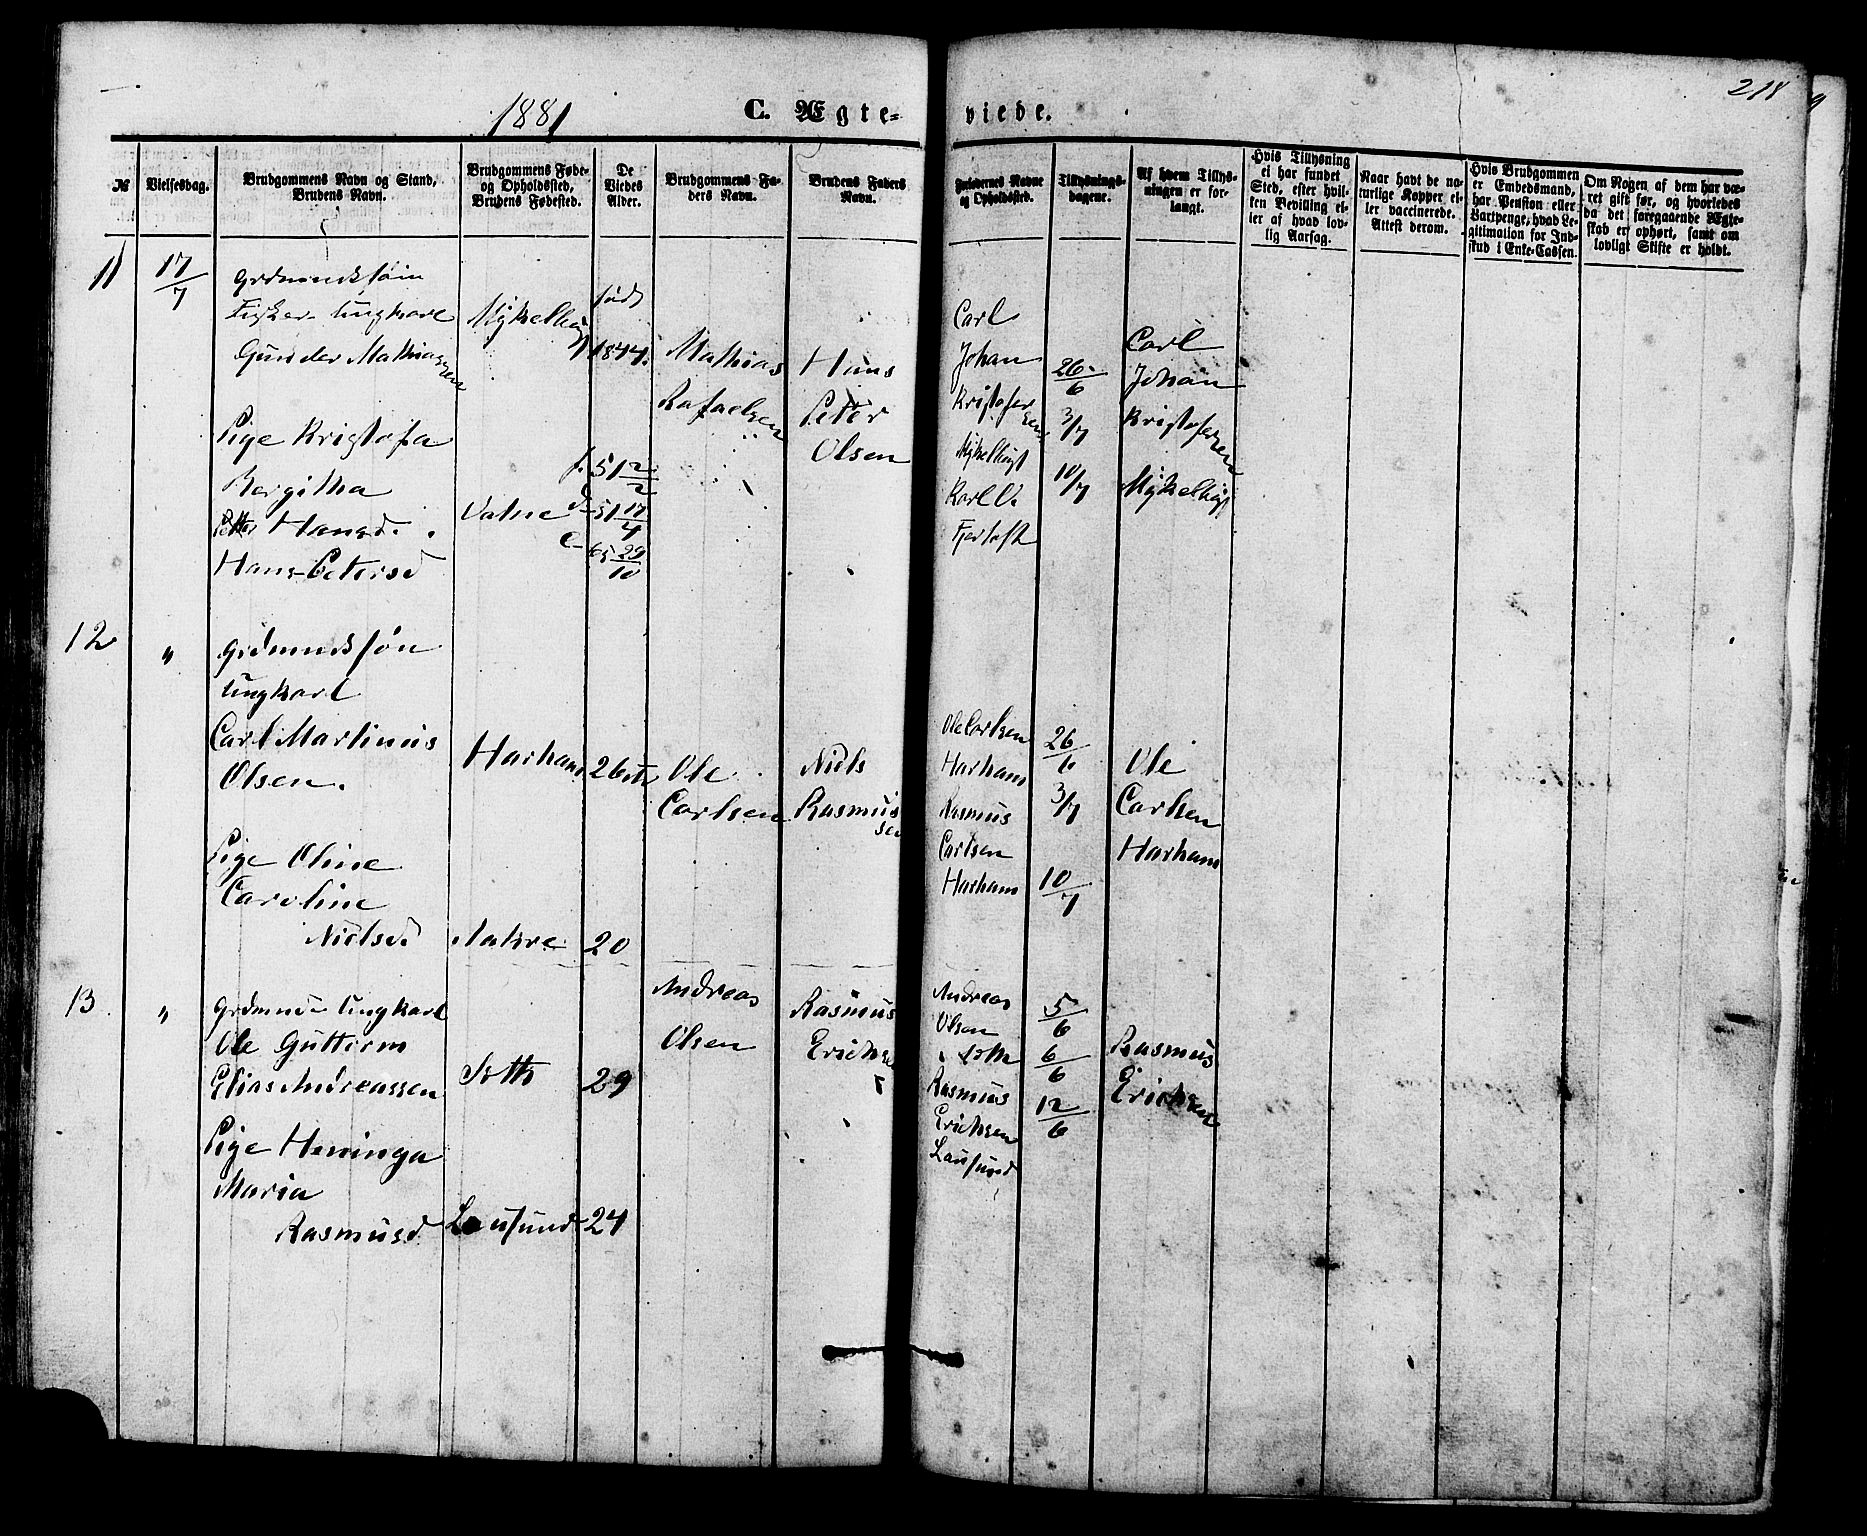 218
1881
C. Ægte-
viede.
№
Vielsesdag.
Brudgommens Navn og Stand,
Brudens Navn.
Brudgommens Føde-
og Opholdssted,
Brudens Fødested.
De
Viedes
Alder.
Brudgommens Fa-
ders Navn.
Brudens Faders
Navn.
Forlovernes Navne
og Opholdssted.
Tillysnings-
dagene.
Af hvem Tillys-
ningen er for-
langt.
Hvis Tillysning
ei har fundet
Sted, efter hvil-
ken Bevilling el-
ler af hvad lov-
lig Aarsag.
Naar havt de na-
turlige Kopper el-
ler vaccinerede.
Attest derom.
Hvis Brudgommen
er Embedsmand,
har Pension eller
Vartpenge, hvad Le-
gitimation for Ind-
skud i Enke-Cassen.
Om Nogen af dem har væ-
ret gift før, og hvorledes
da det foregaaende Ægte-
skab er ophørt, samt om
lovligt Skifte er holdt.
11
17/7
Grdmandssøn
Fisker Ungkarl
Gunder Mathiassen
Pige Kristofa
Bergitha
Petter Hansd.
Hans Petersd
Mykelbug
Vatne
født
1844.
f. 51 2/2
d. 51 17/4
c. 65 29/10
Mathias
Rafaelsen
Hans
Peter
Olsen
Carl
Johan
Kristofersens
Mykelbugt
Karl O.
Fjertoft
26/6
3/7
10/7
Carl
Johan
Kristofersen
Mykelbug
12
"
Grdmandssøn
Ungkarl
Carl Martinus
Olsen.
Pige Oline
Caroline
Nielsd.
Harham
Aakre
26
20
Ole
Carlsen
Niels
Rasmus
sen
Ole Carlsen
Harham
Rasmus
Carlsen
Harham
26/6
3/7
10/7
Ole
Carlsen
Harham
13
"
Grdmand Ungkarl
Ole Guttorm
Elias Andreassen
Pige Heninga
Maria
Rasmusd
Løth
Lausund
29
24
Andreas
Olsen
Rasmus
Erichsen
Andreas
Olsen
Løth
Rasmus
Erichsen
Lausund
5/6
6/6
12/6
Rasmus
Erichsen